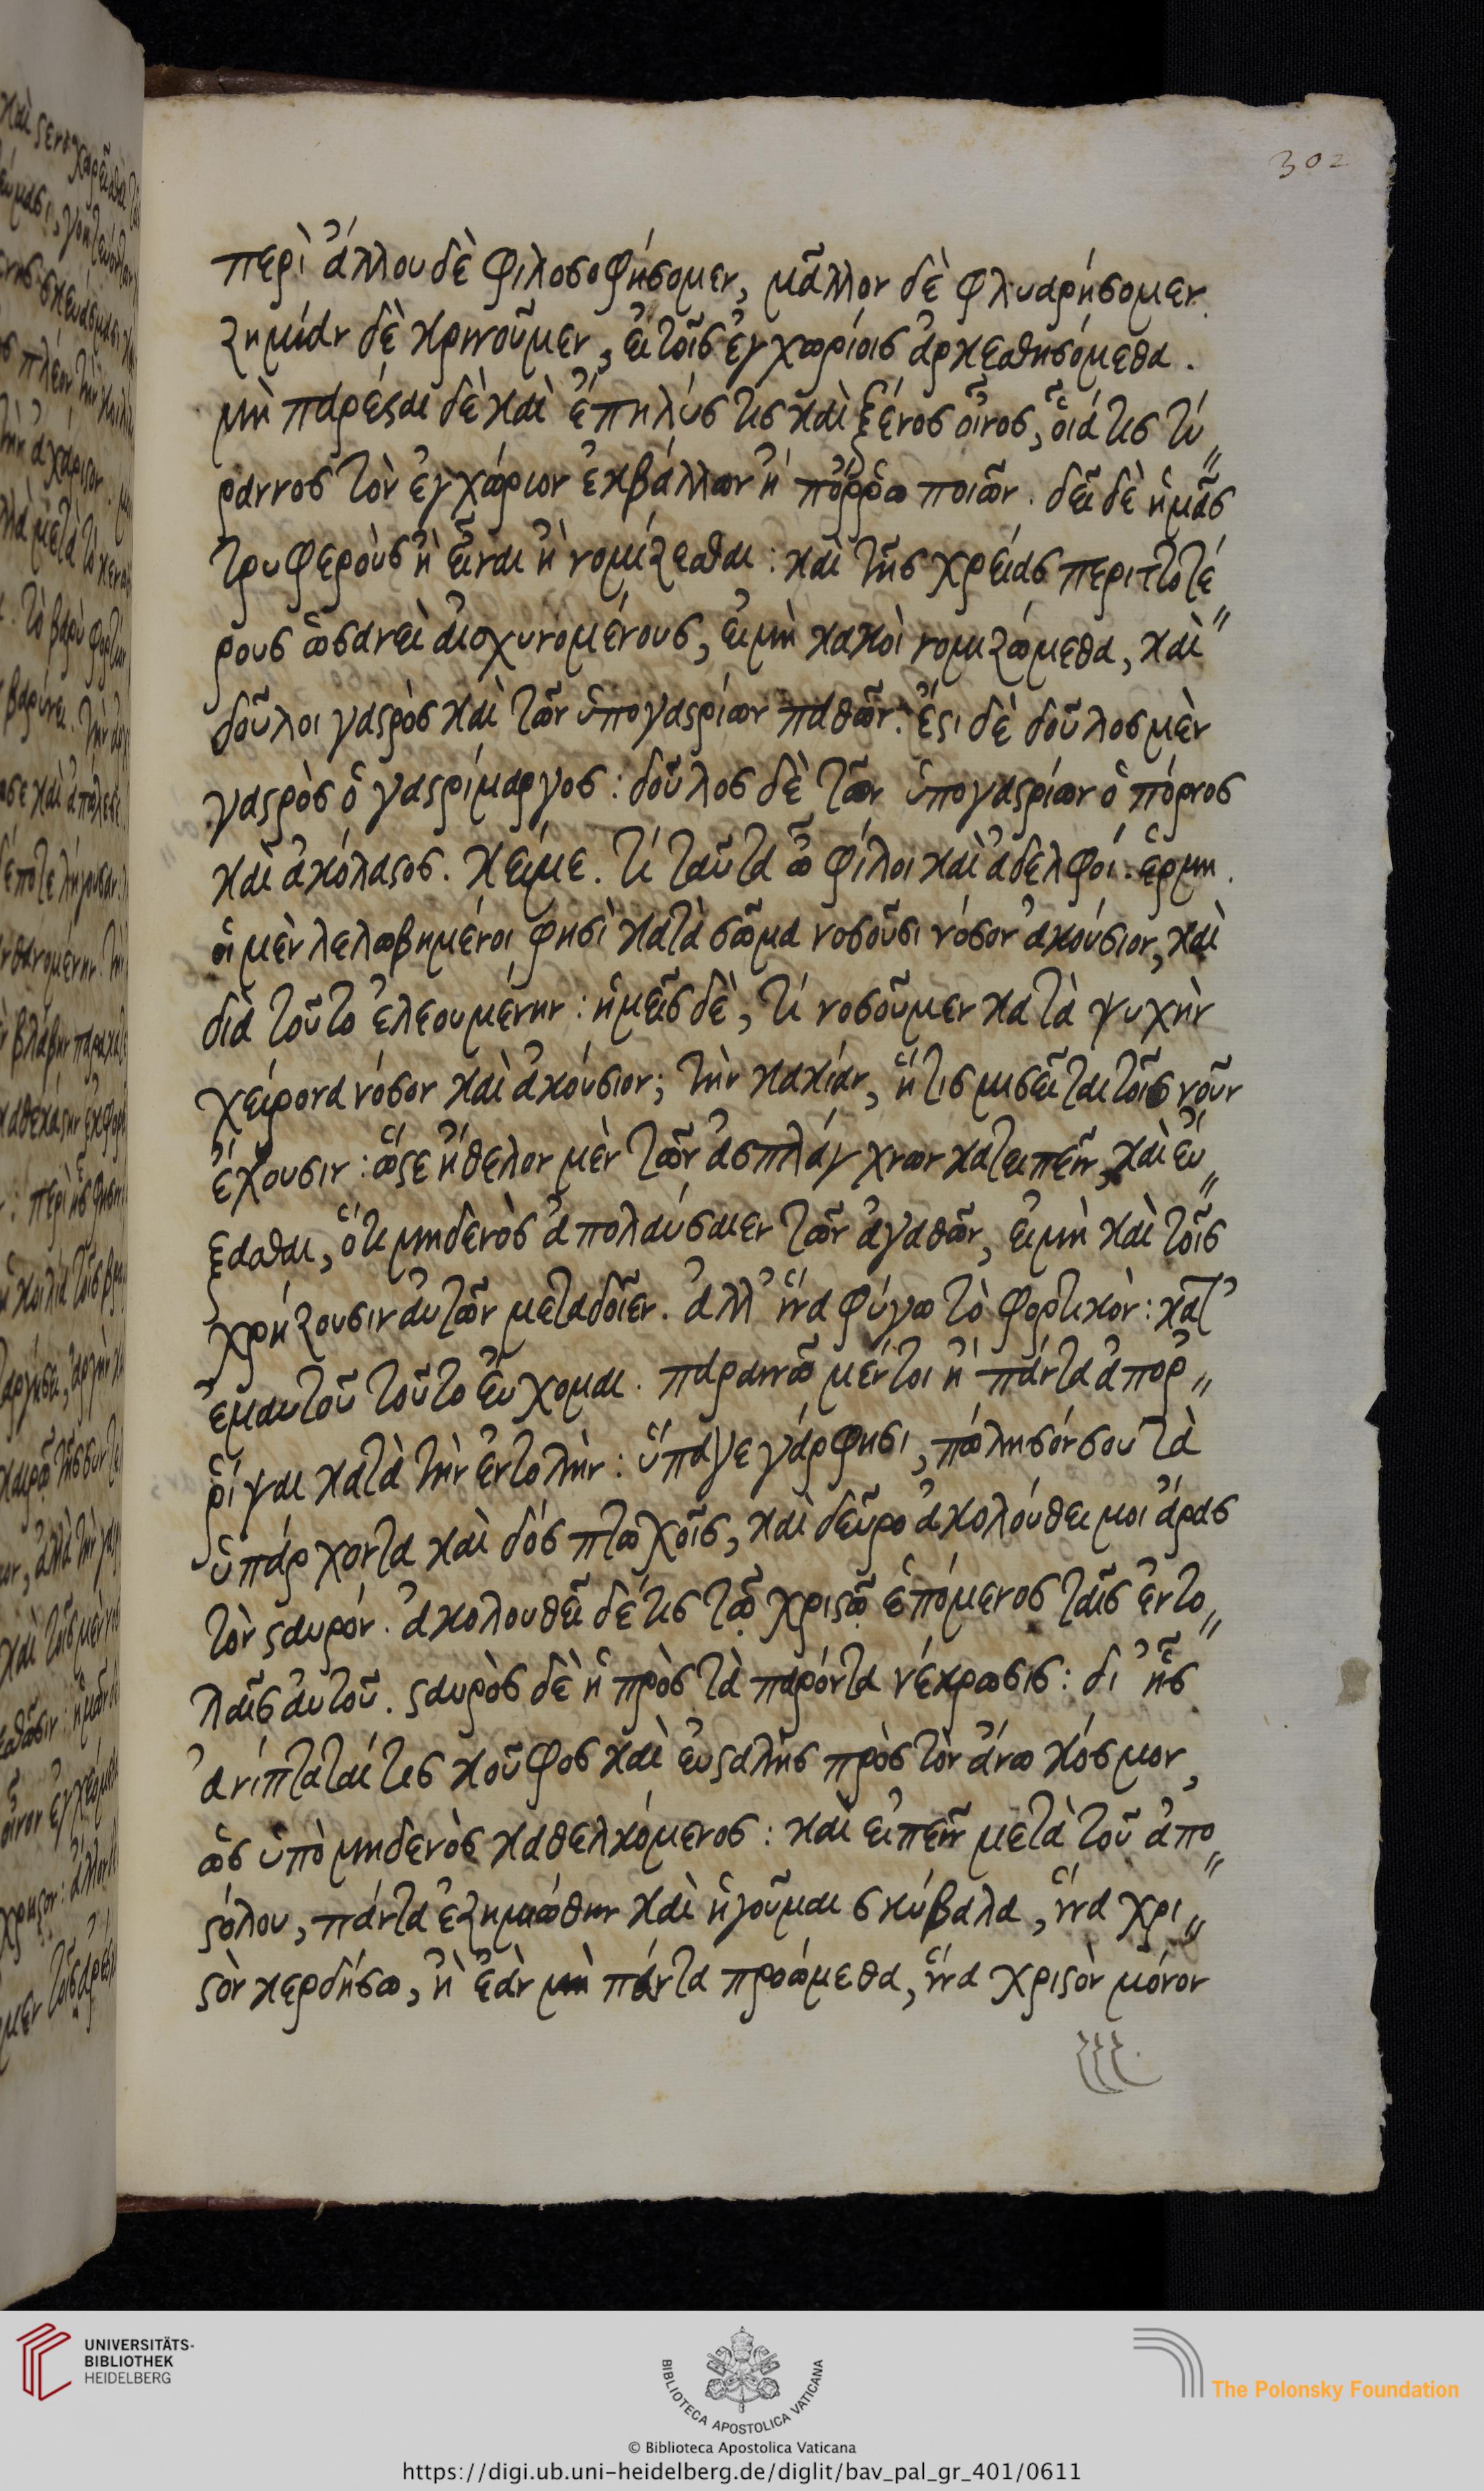 302
περὶ ἄλλου δὲ φιλοσοφήσομεν, μᾶλλον δὲ φλυαρήσομεν.
ζημίαν δὲ κρινοῦμεν, εἰ τοῖς ἐγχωρίοις ἀρκεσθησόμεθα.
μὴ παρέσαι δὲ καὶ ἔπηλύς τις καὶ ξένος οἶνος, οἷά τις τύ〃
ραννος τὸν ἐγχώριον ἐκβάλλων ἢ πόῤῥω ποιῶν. δεῖ δὲ ἡμᾶς
τρυφεροὺς ἢ εἶναι ἢ νομίζεσθαι: καὶ τῆς χρείας περιττοτέ〃
ρους ὡσανεὶ αἰσχυνομένους, εἰ μὴ κακοὶ νομιζώμεθα, καὶ
δοῦλοι γαςρὸς καὶ τῶν ὑπογαςρίων παθῶν. ἔςι δὲ δοῦλος μὲν
γαςρὸς ὁ γαςρίμαργος: δοῦλος δὲ τῶν ὑπογαςρίων ὁ πόρνος
καὶ ἀκόλαςος. κείμε. τί ταῦτα ὦ φίλοι καὶ ἀδελφοί. ἑρμη.
οἱ μὲν λελωβημένοι φησὶ κατὰ σῶμα νοσοῦσι νόσον ἀκούσιον, καὶ
διὰ τοῦτο ἐλεουμένην: ἡμεῖς δὲ, τί νοσοῦμεν κατὰ ψυχὴν
χείρονα νόσον καὶ ἀκούσιον; τὴν κακίαν, ἥτις μισεῖται τοῖς νοῦν
ἔχουσιν: ὥςε ἤθελον μὲν τῶν ἀσπλάγχνων κατειπεῖν, καὶ εὔ〃
ξασθαι, ὅτι μηδενὸς ἀπολαύσαιεν τῶν ἀγαθῶν, εἰ μὴ καὶ τοῖς
χρήζουσιν αὐτῶν μεταδοῖεν. ἀλλ' ἵνα φύγω τὸ φορτικὸν: κατ'
ἐμαυτοῦ τοῦτο εὔχομαι. παραινῶ μέντοι ἢ πάντα ἀποῤ〃
ῥίψαι κατὰ τὴν ἐντολὴν: ὕπαγε γάρ φησι, πώλησόν σου τὰ
ὑπάρχοντα καὶ δὸς πτωχοῖς, καὶ δεῦρο ἀκολούθει μοι ἄρας
τὸν ςαυρόν. ἀκολουθεῖ δέ τις τῷ χριςῷ ἑπόμενος ταῖς ἐντο〃
λαῖς αὐτοῦ. ςαυρὸς δὲ ἡ πρὸς τὰ παρόντα νέκρωσις: δι' ἧς
ἀνίπταταί τις κοῦφος καὶ εὐςαλὴς πρὸς τὸν ἄνω κόσμον,
ὡς ὑπὸ μηδενὸς καθελκόμενος: καὶ εἰπεῖν μετὰ τοῦ ἀπο〃
ςόλου, πάντα ἐζημιώθην καὶ ἡγοῦμαι σκύβαλα, ἵνα χρι〃
ςὸν κερδήσω, ἢ ἐὰν μὴ πάντα προώμεθα, ἵνα χριςὸν μόνον
UNIVERSITÄTS-
BIBLIOTHEK
HEIDELBERG
BIBLIOTECA APOSTOLICA VATICANA
The Polonsky Foundation
© Biblioteca Apostolica Vaticana
https://digi.ub.uni-heidelberg.de/diglit/bav_pal_gr_401/0611